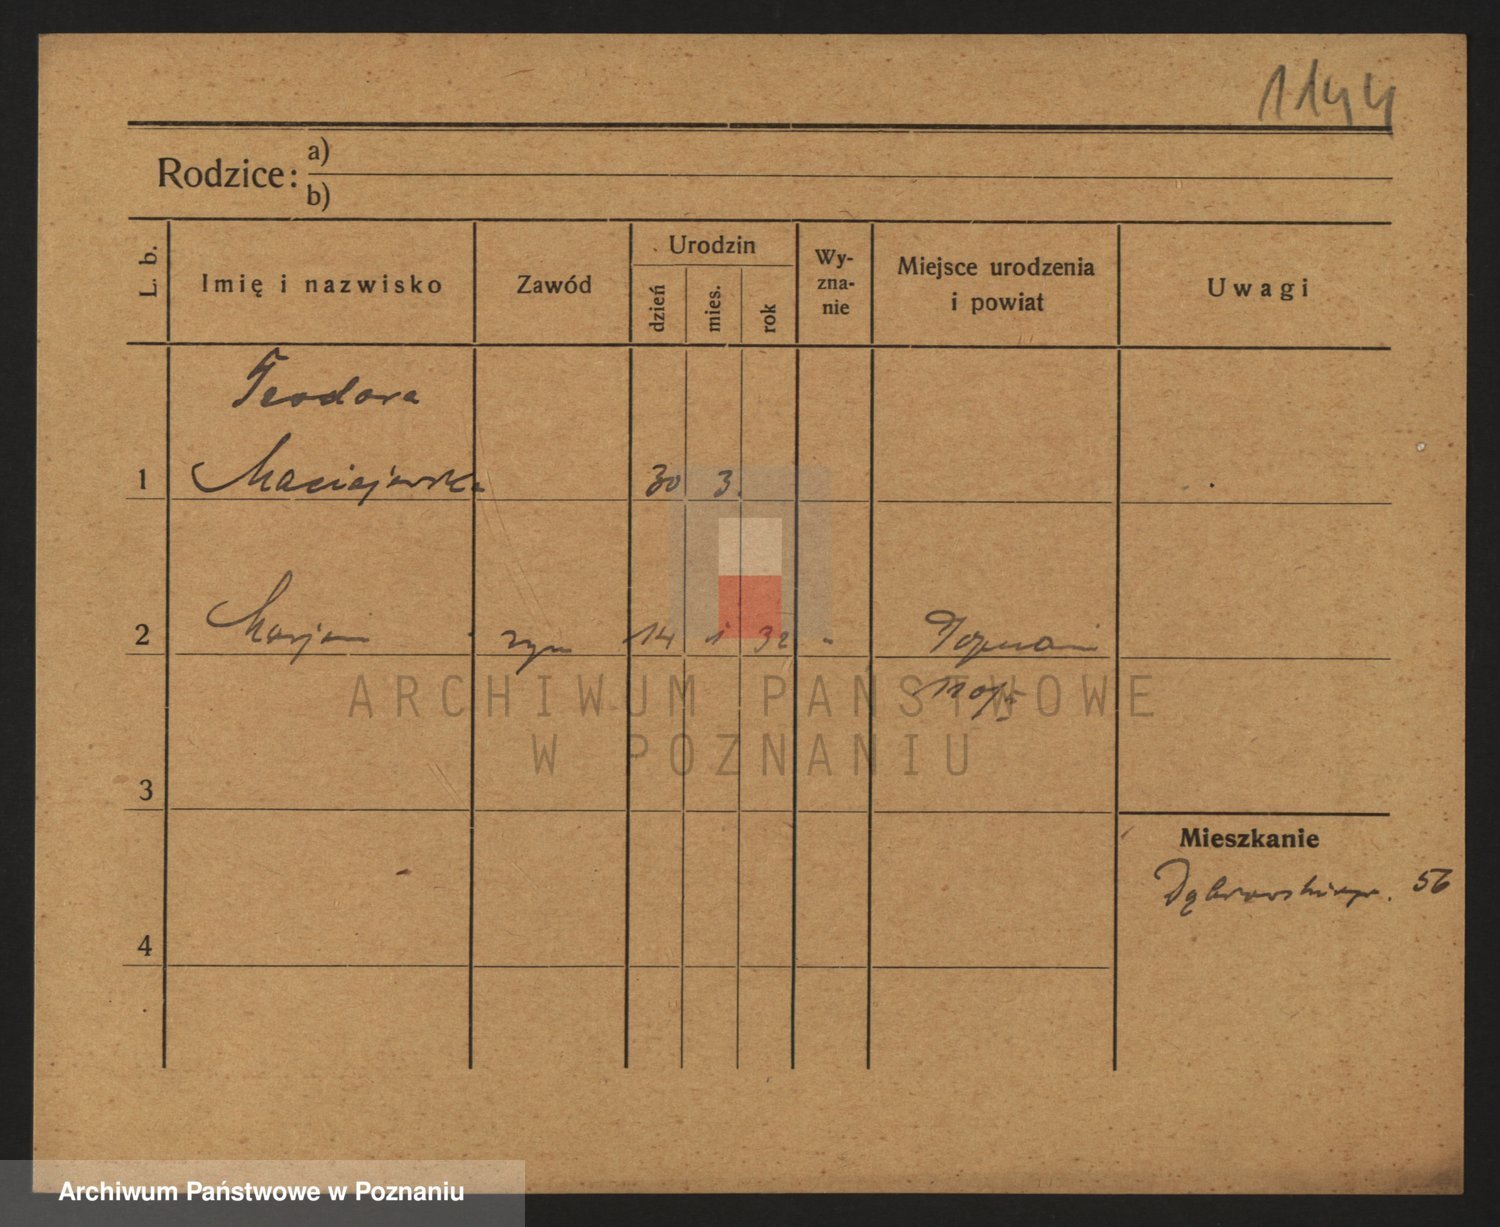 1144
Rodzice: a)
b)
L. b. Imię i nazwisko Zawód Urodzin dzień mies. rok Wy-zna-nie Miejsce urodzenia i powiat Uwagi
Teodora
1 Maciejewska 30 3.
2 Marjan syn 14 1 32 " Poznań
ARCHIWUM PAŃSTWOWE
W POZNANIU
3
Mieszkanie
Dąbrowskiego. 56
4
Archiwum Państwowe w Poznaniu